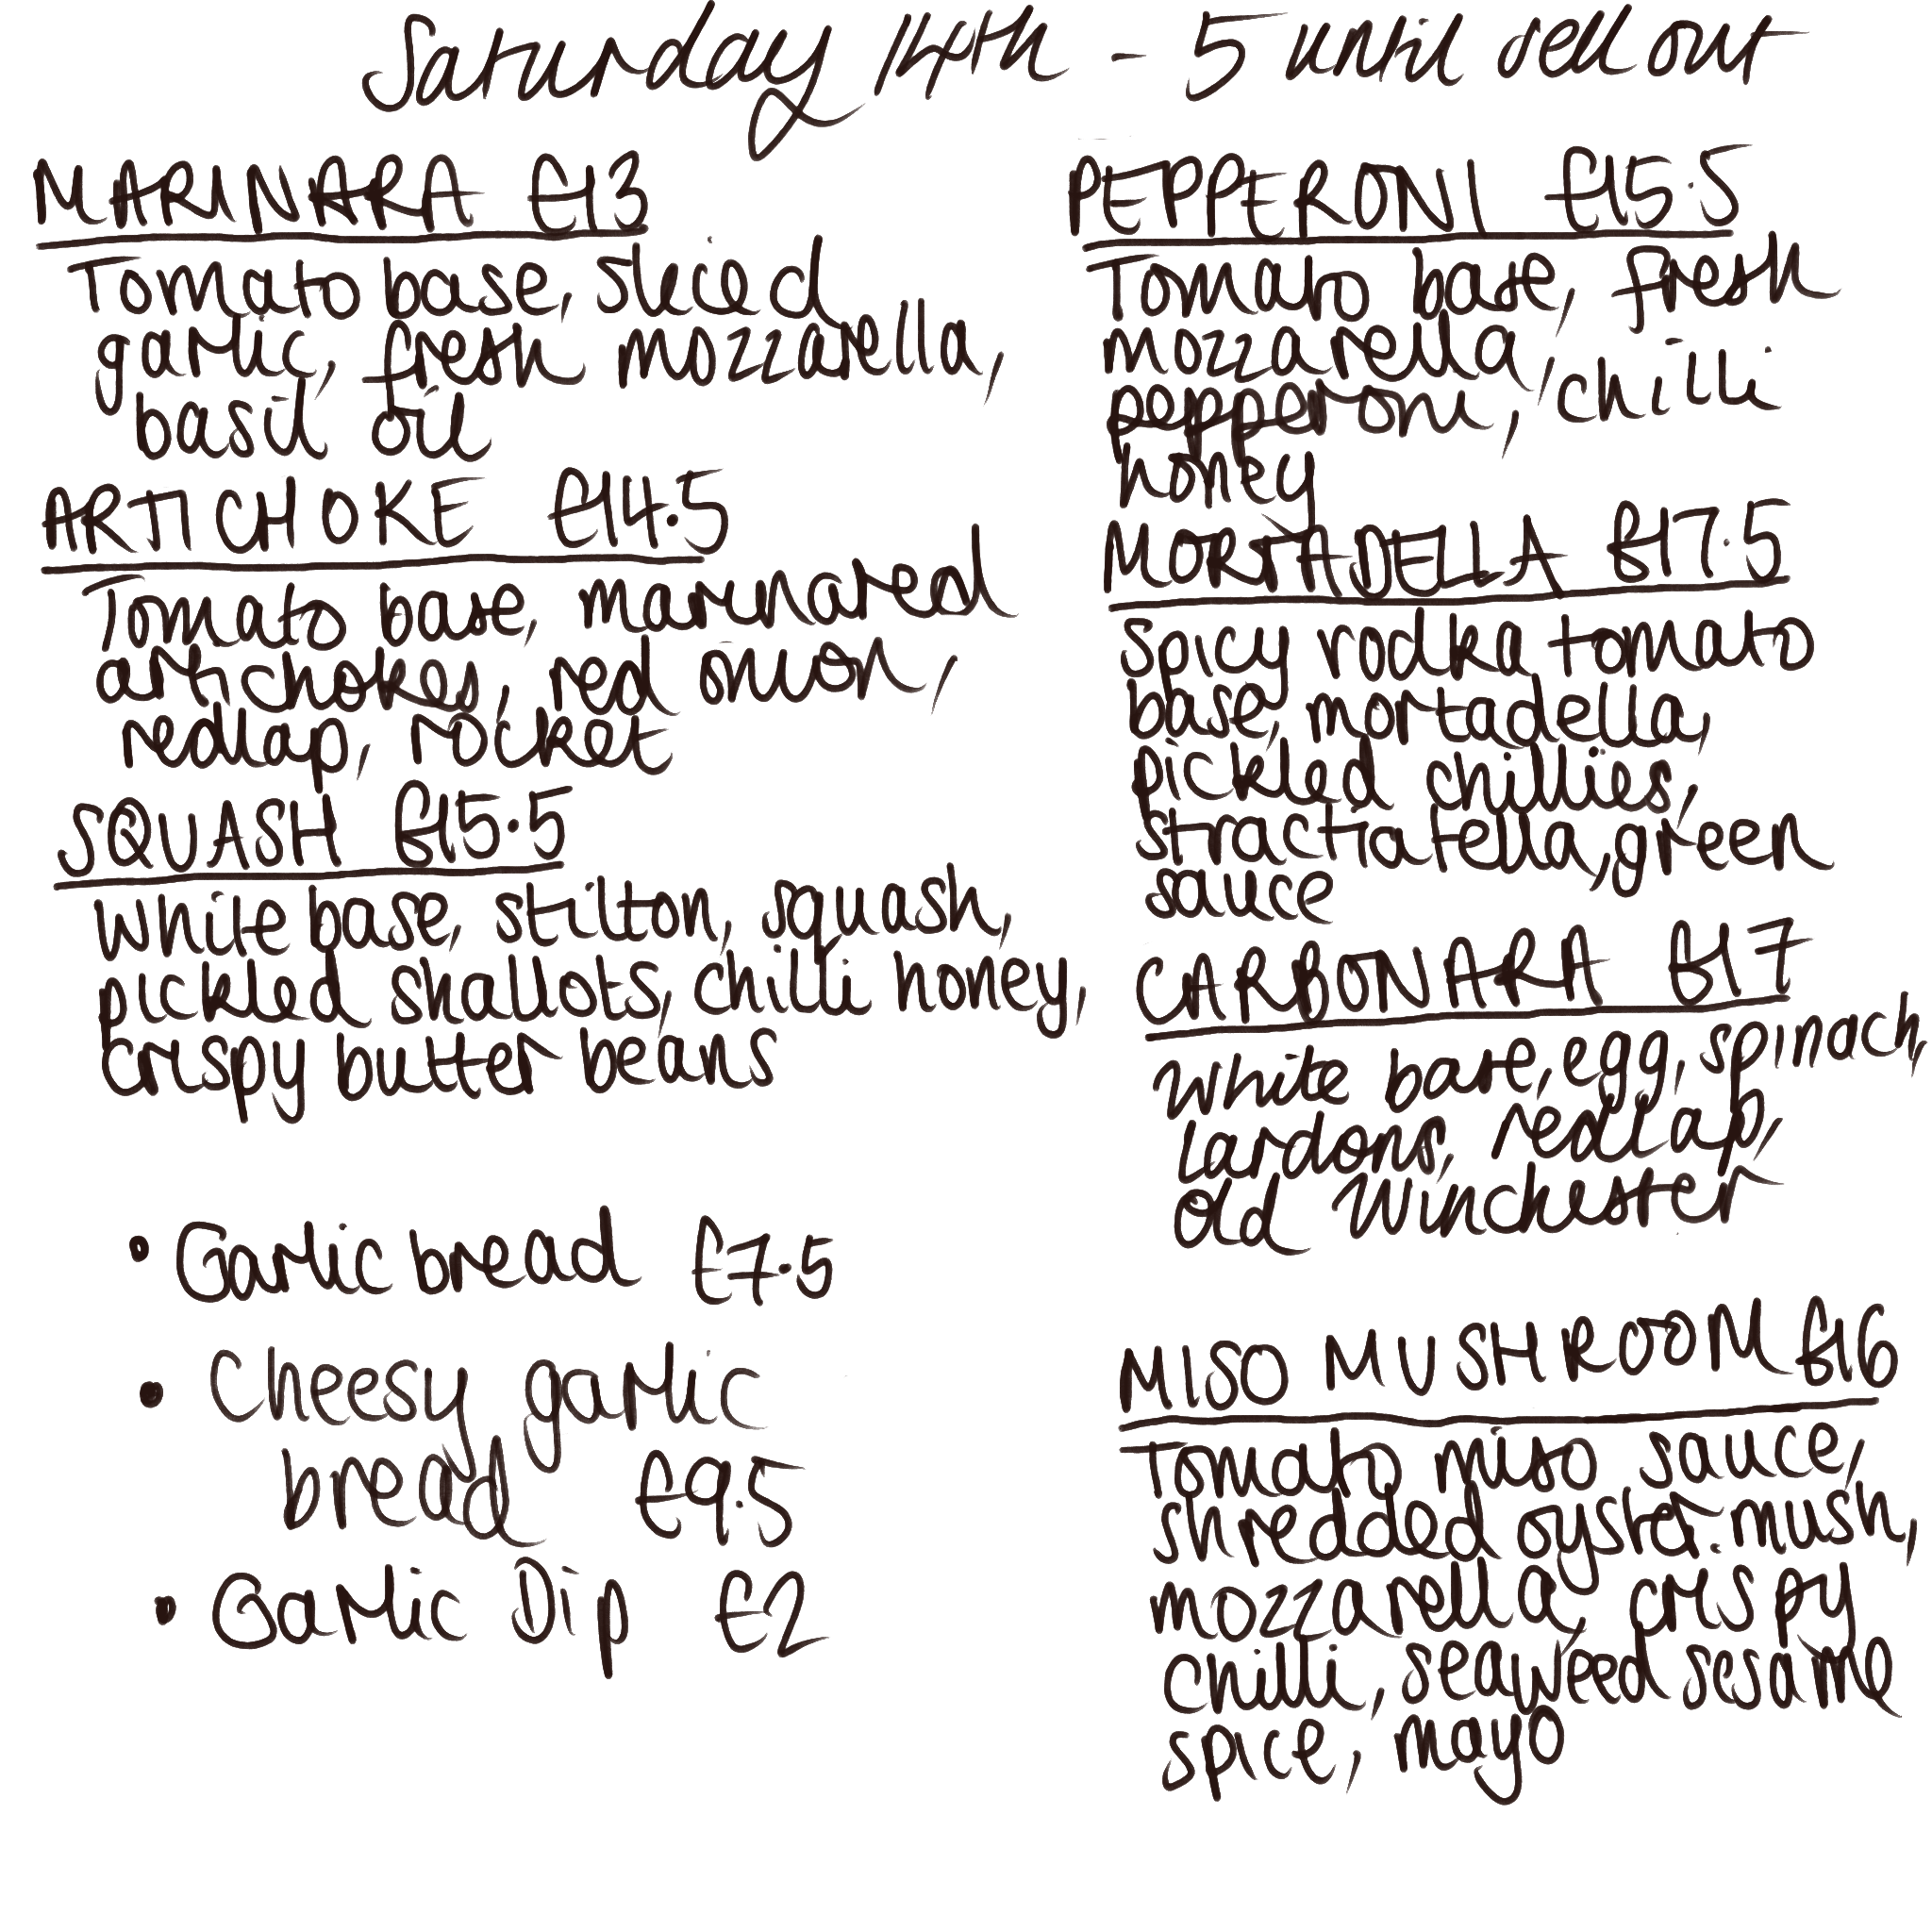 Saturday 14th - 5 until sell out
MARINARA £13
Tomato base, sliced
garlic, fresh mozzarella,
basil, oil
ARTICHOKE £14.5
Tomato base, marinared
artichokes, red onion,
redlap, rocket
SQUASH £15.5
White base, stilton, squash,
pickled shallots, chilli honey,
crispy butter beans
• Garlic bread £7.5
• Cheesy garlic
bread £9.5
• Garlic Dip £2
PEPPERONI £15.5
Tomato base, fresh
mozzarella,
pepperoni, chilli
honey
MORTADELLA £17.5
Spicy vodka tomato
base, mortadella,
pickled chillies,
stracciatella, green
sauce
CARBONARA £17
White base, egg, spinach,
lardons, redlap,
old Winchester
MISO MUSHROOM £16
Tomato miso sauce,
shredded oyster mush,
mozzarella, crispy
chilli, seaweed sesame
spice, mayo